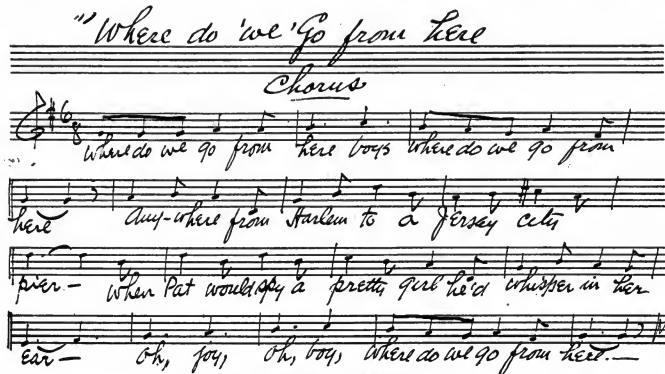 "Where do 'we' Go from here
Chorus
6
8
where do we go from here boys where do we go from
here any-where from Harlem to a Jersey city
pier- when Pat would spy a pretty girl he'd whisper in her
ear- oh, joy, oh, boy, where do we go from here.-